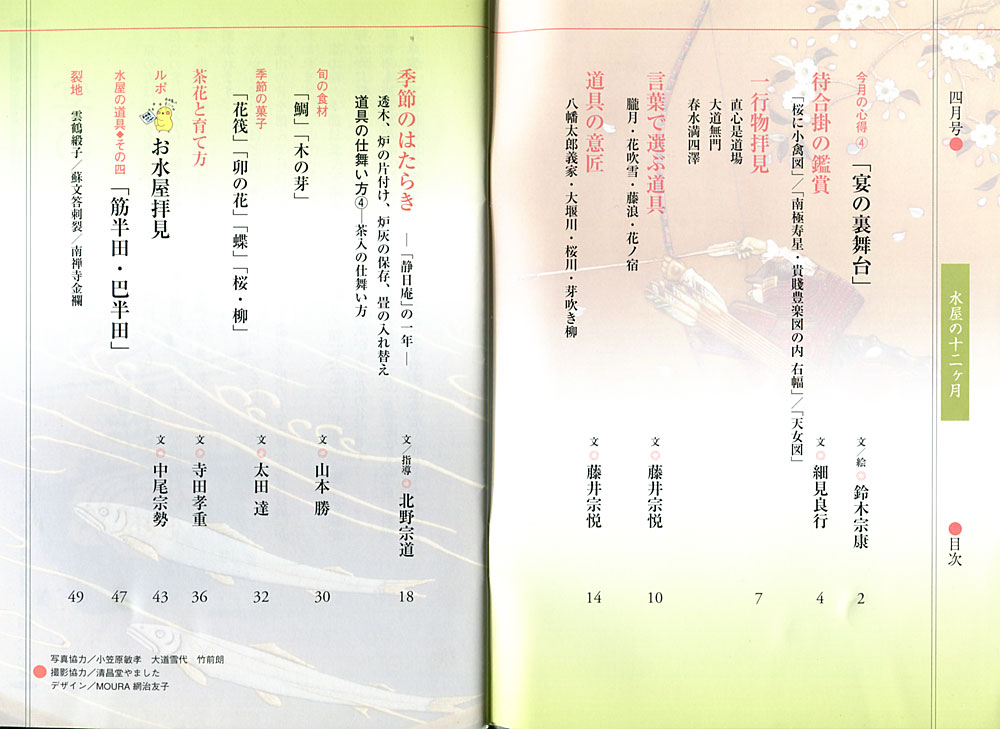 四月号
水屋の十二ヶ月
目次
今月の心得④「宴の裏舞台」 文/絵 鈴木宗康 2
待合掛の鑑賞 文 細見良行 4
「桜に小禽図」/「南極寿星・貴賤豊楽図の内 右幅」/「天女図」
一行物拝見 7
直心是道場
大道無門
春水満四澤
言葉で選ぶ道具 文 藤井宗悦 10
朧月・花吹雪・藤浪・花ノ宿
道具の意匠 文 藤井宗悦 14
八幡太郎義家・大堰川・桜川・芽吹き柳
季節のはたらき ―「静日庵」の一年― 文/指導 北野宗道 18
透木、炉の片付け、炉灰の保存、畳の入れ替え
道具の仕舞い方④―茶入の仕舞い方
旬の食材 文 山本 勝 30
「鯛」「木の芽」
季節の菓子 文 太田 達 32
「花筏」「卯の花」「蝶」「桜・柳」
茶花と育て方 文 寺田孝重 36
ルポ お水屋拝見 文 中尾宗勢 43
水屋の道具◆その四「筋半田・巴半田」 47
裂地 雲鶴緞子/蘇文答刺裂/南禅寺金襴 49
写真協力/小笠原敏孝 大道雪代 竹前朗
撮影協力/清昌堂やました
デザイン/MOURA 網治友子